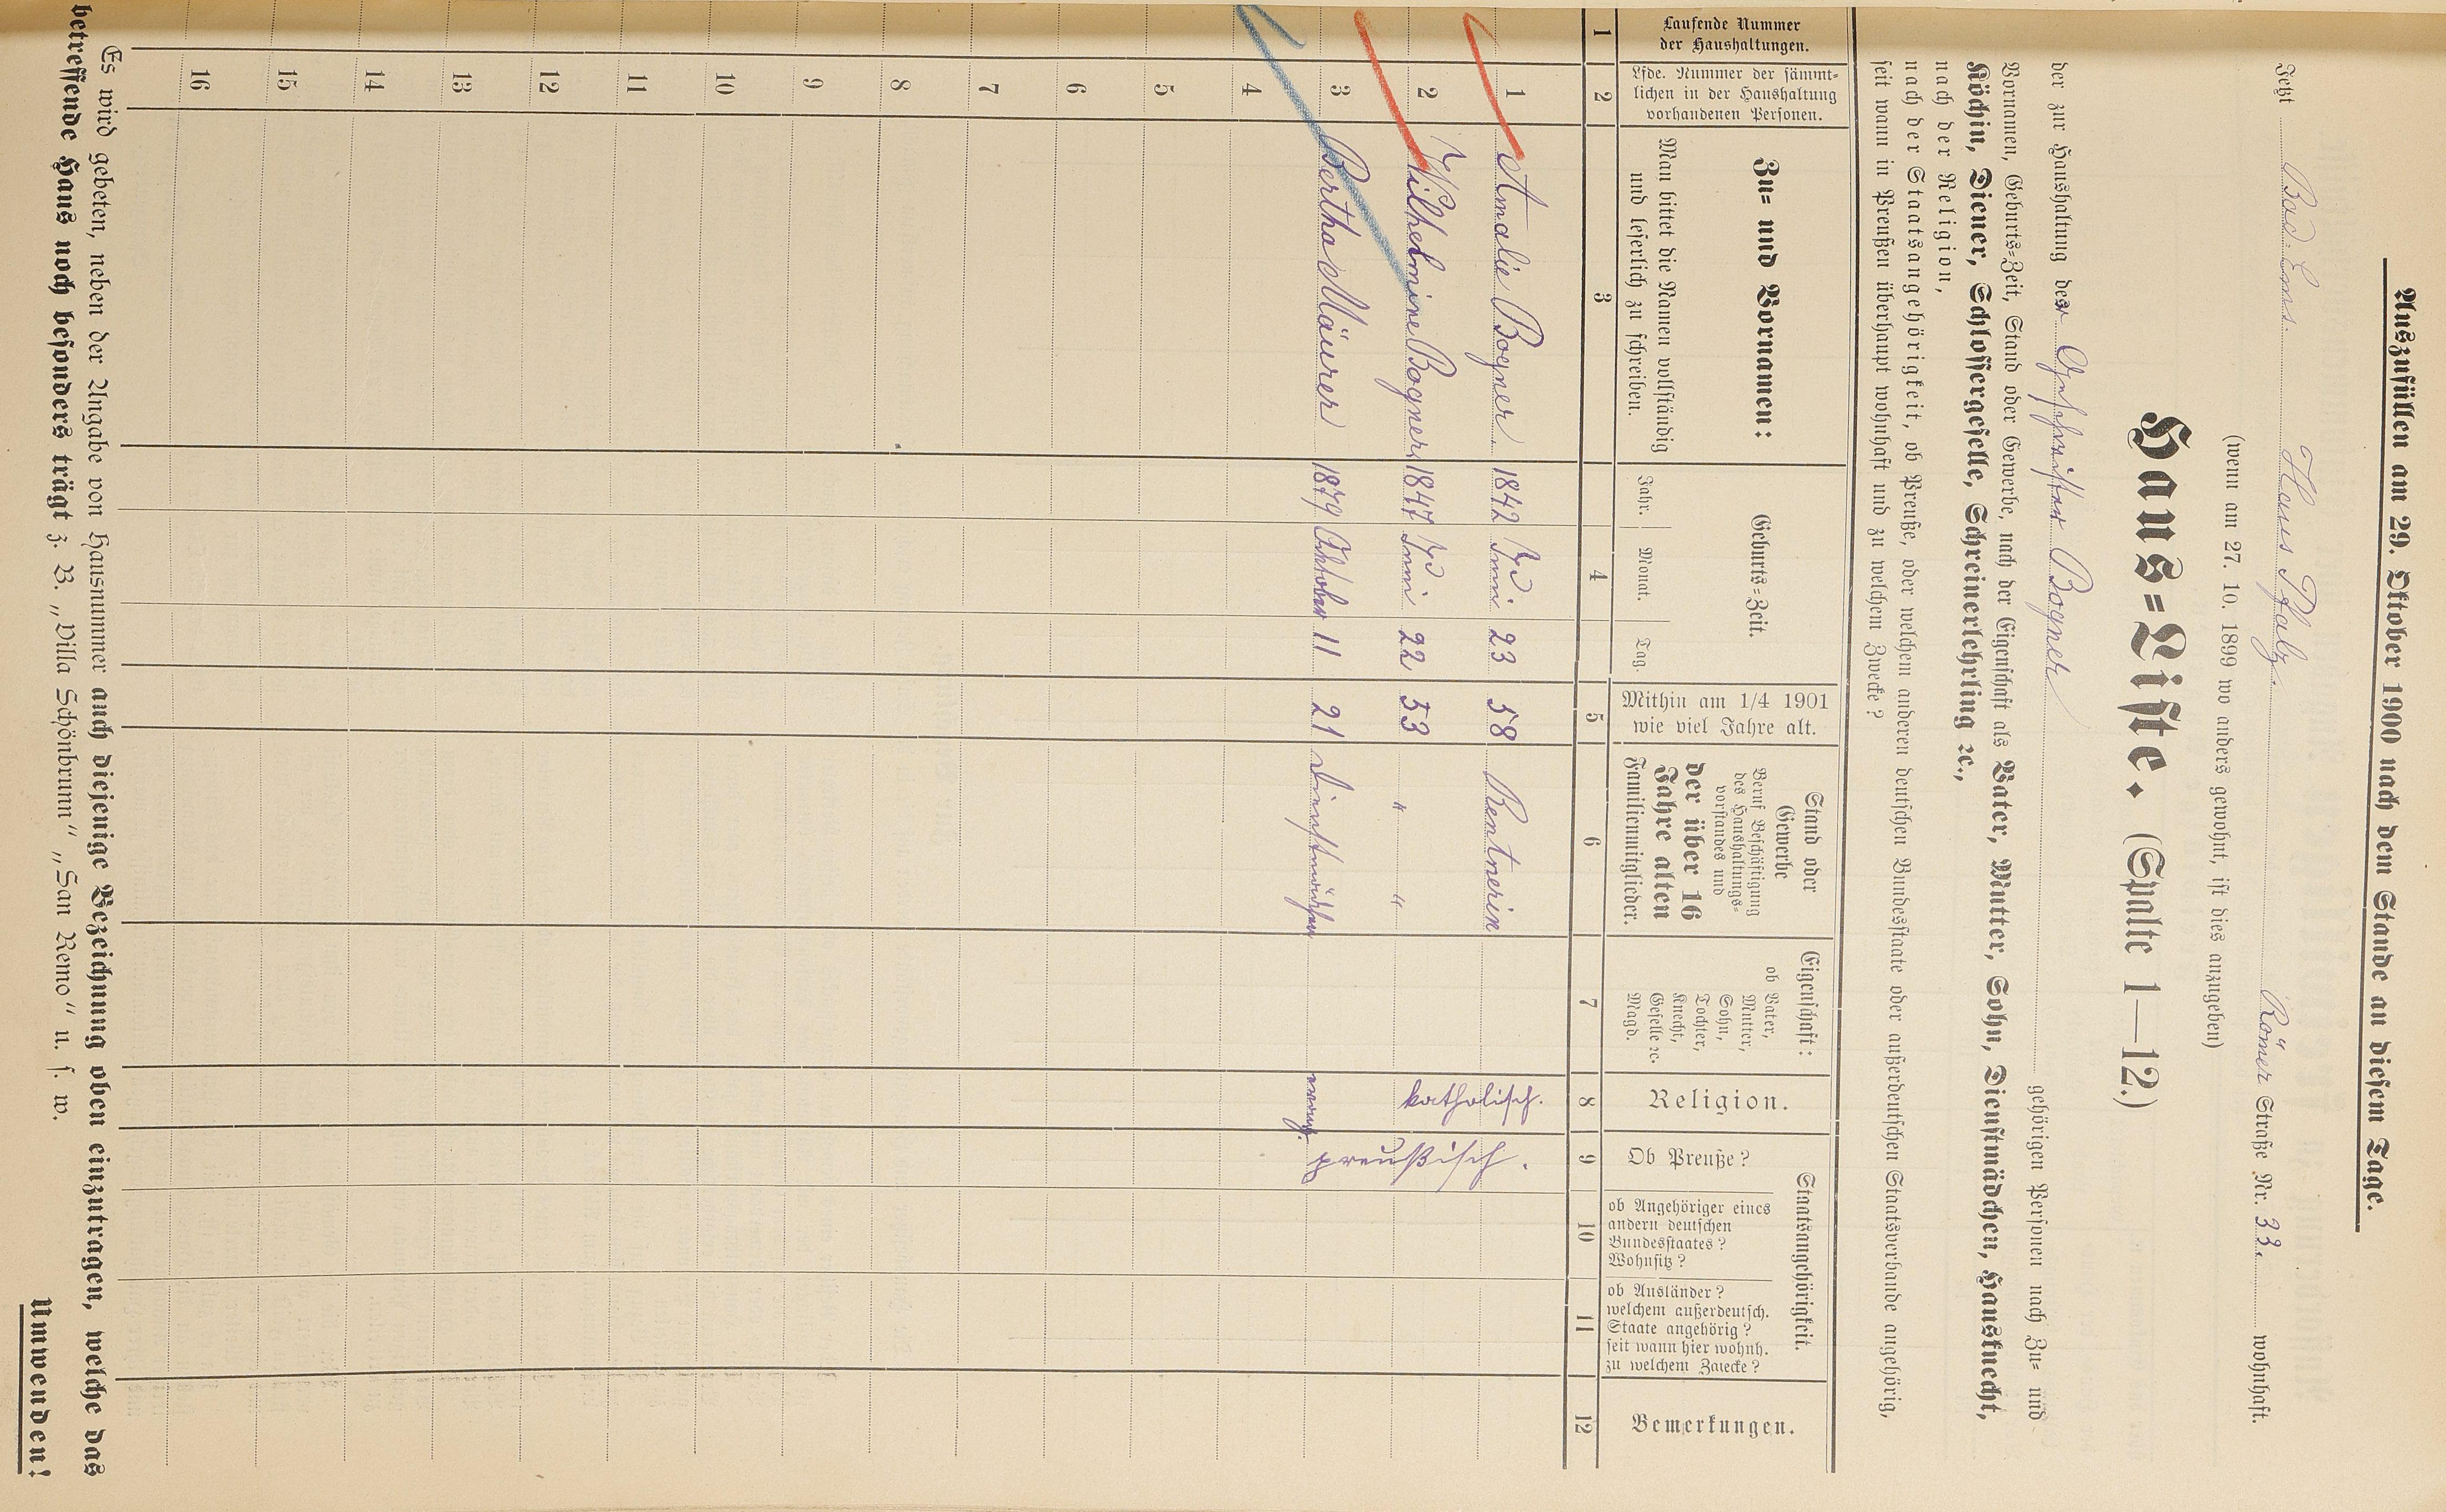 Auszufüllen am 29. Oktober 1900 nach dem Stande an diesem Tage.
Jetzt Bad-Ems. Haus Pfalz. Römer Straße Nr. 33. wohnhaft.
(wenn am 27. 10. 1899 wo anders gewohnt, ist dies anzugeben)
Haus=Liste. (Spalte 1—12.)
der zur Haushaltung der Geschwister Bogner gehörigen Personen nach Zu= und
Vornamen, Geburts=Zeit, Stand oder Gewerbe, nach der Eigenschaft als Vater, Mutter, Sohn, Dienstmädchen, Hausknecht,
Köchin, Diener, Schlossergeselle, Schreinerlehrling ꝛc.,
nach der Religion,
nach der Staatsangehörigkeit, ob Preuße, oder welchem anderen deutschen Bundesstaate oder außerdeutschen Staatsverbande angehörig,
seit wann in Preußen überhaupt wohnhaft und zu welchem Zwecke?
Laufende Nummer
der Haushaltungen.
Lfde. Nummer der sämmt=
lichen in der Haushaltung
vorhandenen Personen.
Zu= und Vornamen:
Man bittet die Namen vollständig
und leserlich zu schreiben.
Geburts=Zeit.
Jahr. Monat. Tag.
Mithin am 1/4 1901
wie viel Jahre alt.
Stand oder
Gewerbe
Beruf Beschäftigung
des Haushaltungs=
vorstandes und
der über 16
Jahre alten
Familienmitglieder.
Eigenschaft:
ob Vater,
Mutter,
Sohn,
Tochter,
Knecht,
Geselle ꝛc.
Magd.
Religion.
Staatsangehörigkeit.
Ob Preuße?
ob Angehöriger eines
andern deutschen
Bundesstaates?
Wohnsitz?
ob Ausländer?
welchem außerdeutsch.
Staate angehörig?
seit wann hier wohnh.
zu welchem Zwecke?
Bemerkungen.
1 2 3 4 5 6 7 8 9 10 11 12
1 Amalie Bogner 1842 Juni 23 58 Rentnerin katholisch.
2 Wilhelmine Bogner 1847 Juni 22 53 " " preußisch.
3 Bertha Mäurer 1879 Oktober 11 21 Dienstmädchen evang.
4
5
6
7
8
9
10
11
12
13
14
15
16
Es wird gebeten, neben der Angabe von Hausnummer auch diejenige Bezeichnung oben einzutragen, welche das
betreffende Haus noch besonders trägt z. B. „Villa Schönbrunn" „San Remo" u. s. w.
Umwenden!